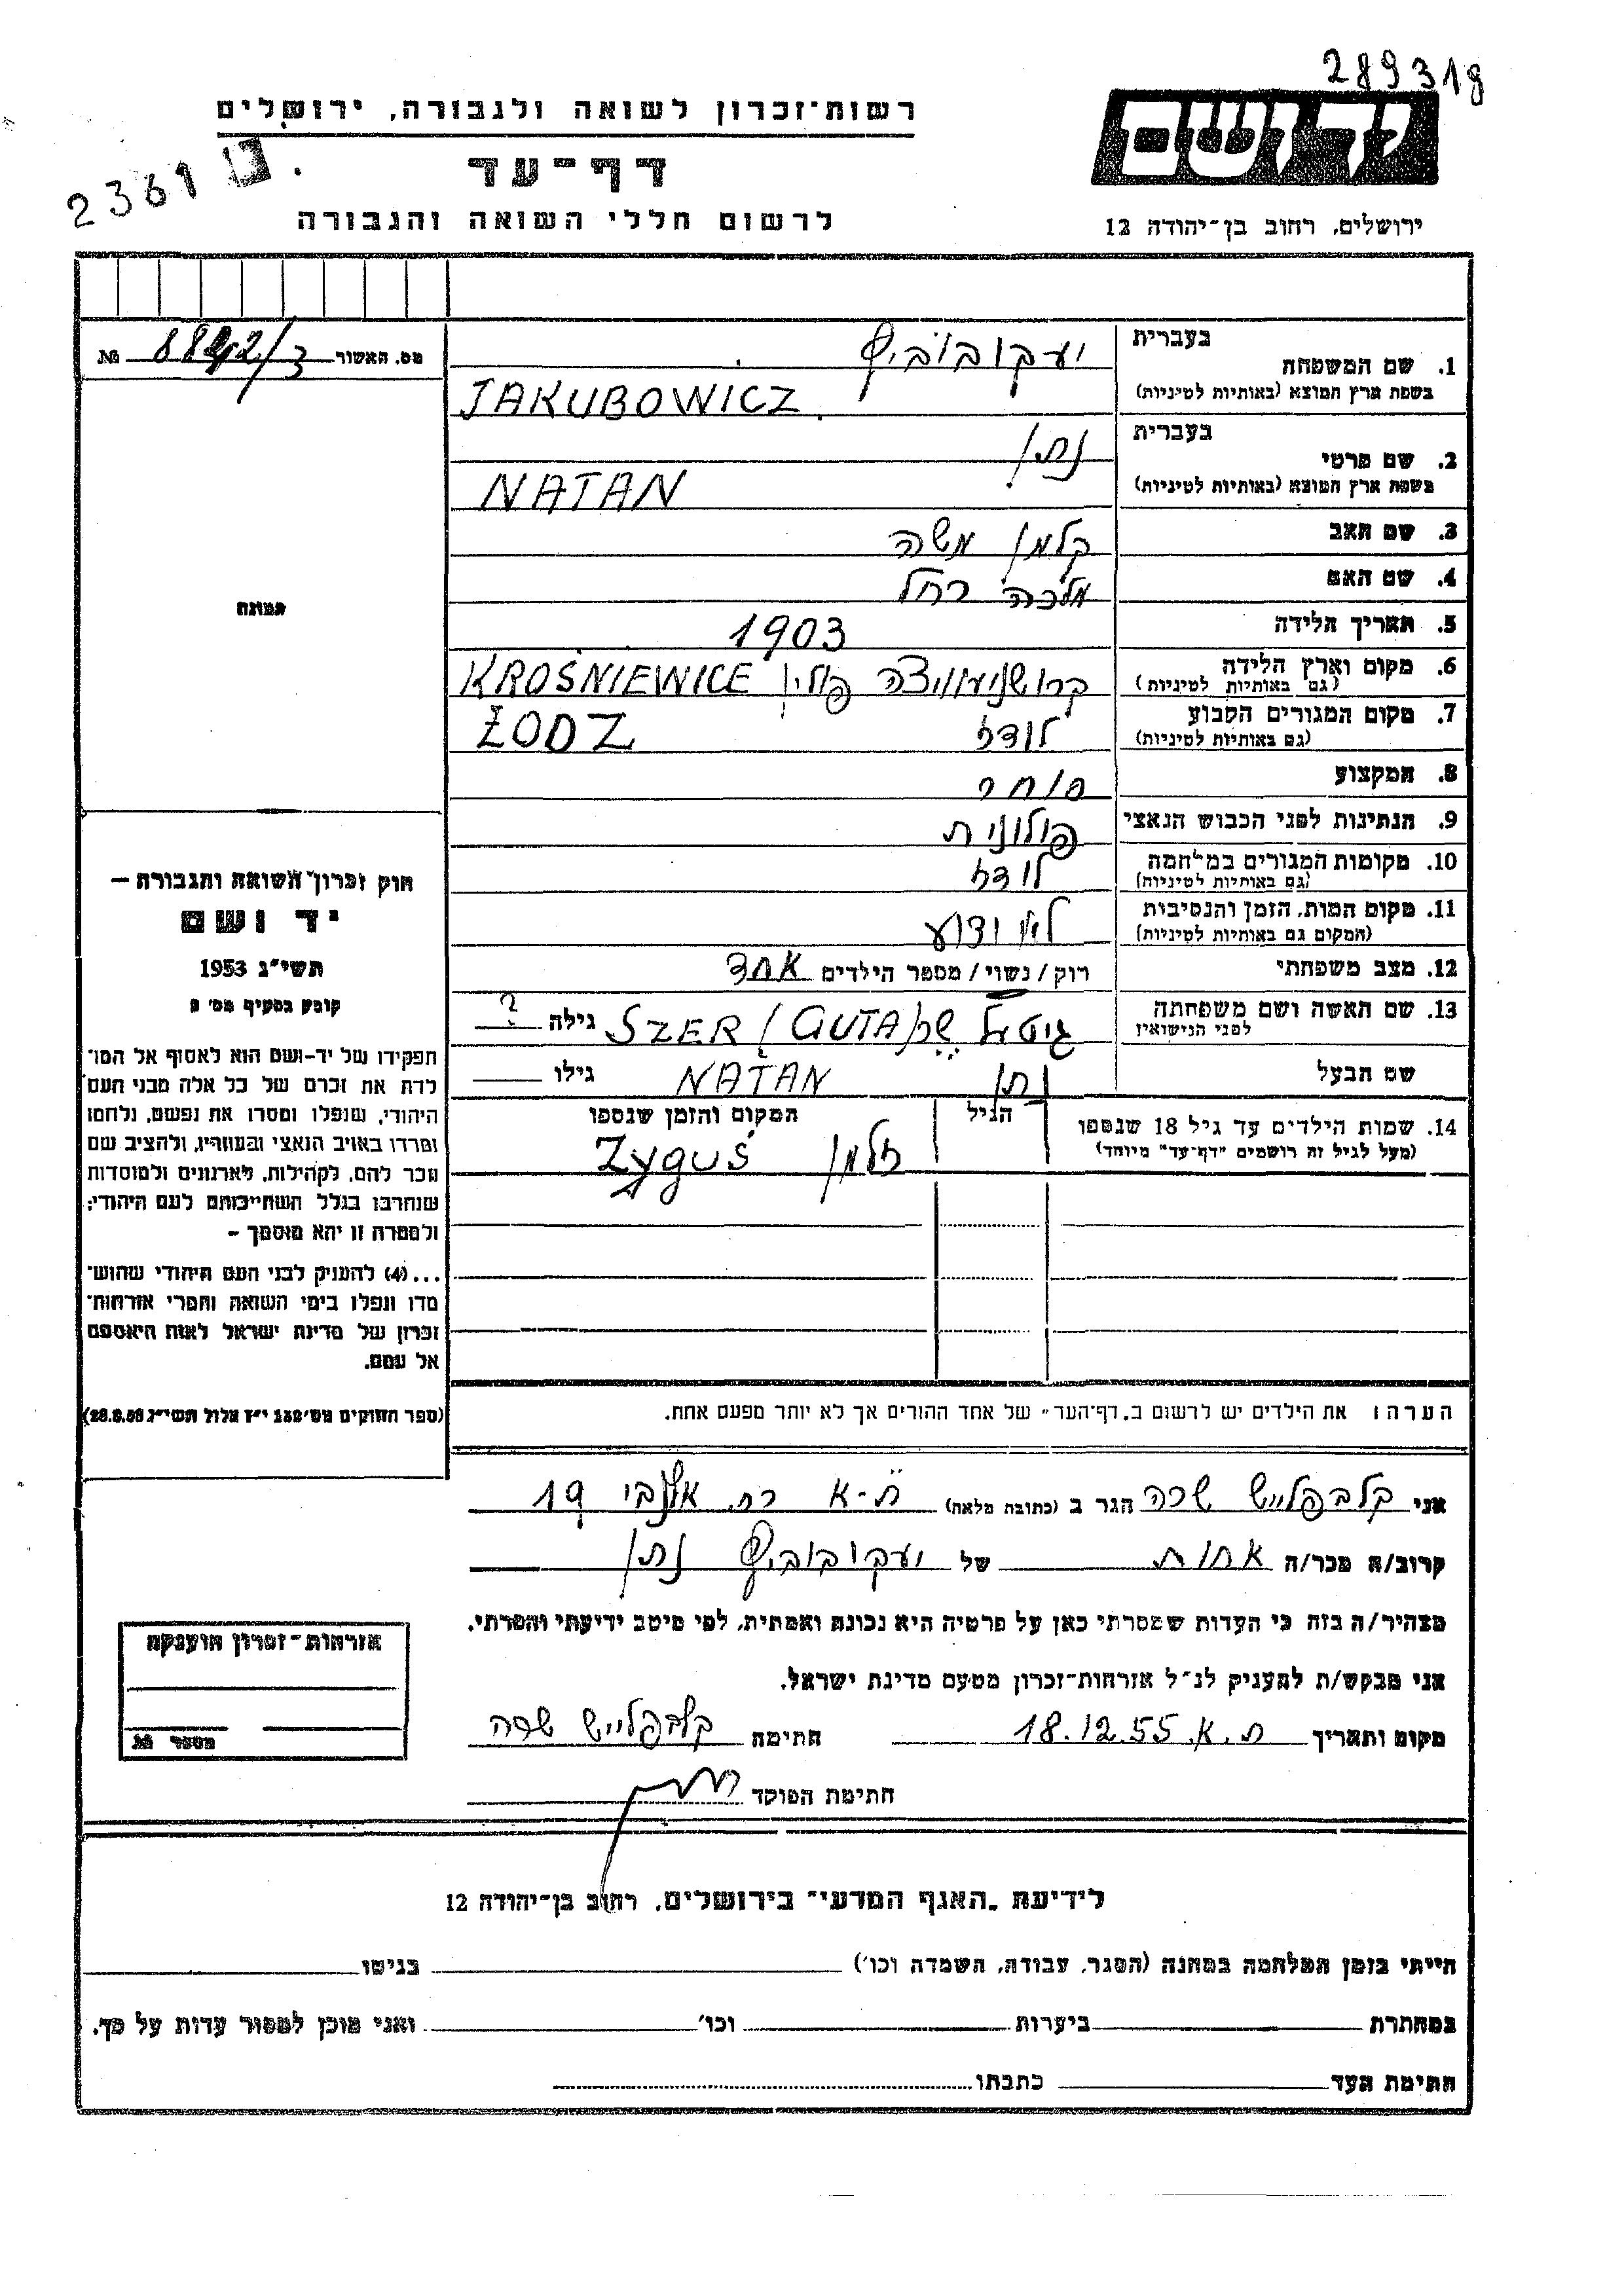 289318
רשות-זכרון לשואה ולגבורה, ירושלים
יד ושם
2361
דף-עד
לרשום חללי השואה והגבורה
ירושלים, רחוב בן-יהודה 12
מס. האשור № 8842/3
1. שם המשפחה
בעברית יעקובוביץ
בשפת ארץ המוצא (באותיות לטיניות) JAKUBOWICZ
2. שם פרטי
בעברית נתן
בשפת ארץ המוצא (באותיות לטיניות) NATAN
3. שם האב קלמן משה
4. שם האם מלכה רחל
5. תאריך הלידה 1903
6. מקום וארץ הלידה קרושניעוויצה פולין KROŚNIEWICE
(גם באותיות לטיניות)
7. מקום המגורים הקבוע לודז ŁODZ
(גם באותיות לטיניות)
8. המקצוע סוחר
9. הנתינות לפני הכבוש הנאצי פולונית
10. מקומות המגורים במלחמה לודז
(גם באותיות לטיניות)
11. מקום המות, הזמן והנסיבות לא ידוע
(המקום גם באותיות לטיניות)
12. מצב משפחתי רוק / נשוי / מספר הילדים אחד
13. שם האשה ושם משפחתה גיטל שר (GUTA) SZER גילה ?
לפני הנישואין
שם הבעל נתן NATAN גילו
14. שמות הילדים עד גיל 18 שנספו הגיל המקום והזמן שנספו
(מעל לגיל זה רושמים "דף-עד" מיוחד) זלמן Zyguś
תמונה
חוק זכרון השואה והגבורה —
יד ושם
תשי"ג 1953
קובע בסעיף מס' 2
תפקידו של יד-ושם הוא לאסוף אל המו־
לדת את זכרם של כל אלה מבני העם
היהודי, שנפלו ומסרו את נפשם, נלחמו
ומרדו באויב הנאצי ובעוזריו, ולהציב שם
וזכר להם, לקהילות, לארגונים ולמוסדות
שנחרבו בגלל השתייכותם לעם היהודי;
ולמטרה זו יהא מוסמך —
...(4) להעניק לבני העם היהודי שהוש־
מדו ונפלו בימי השואה והמרי אזרחות־
זכרון של מדינת ישראל לאות היאספם
אל עמם.
(ספר החוקים מס' 132 י"ז אלול תשי"ג 28.8.53)
הערה: את הילדים יש לרשום ב"דף-העד" של אחד ההורים אך לא יותר מפעם אחת.
אני קלבפלייש שרה הגר ב (כתובת מלאה) ת-א רח. אלנבי 19
קרוב/ה מכר/ה אחות של יעקובוביץ נתן
מצהיר/ה בזה כי העדות שמסרתי כאן על פרטיה היא נכונה ואמתית, לפי מיטב ידיעתי והכרתי.
אני מבקש/ת להעניק לנ"ל אזרחות-זכרון מטעם מדינת ישראל.
מקום ותאריך ת.א. 18.12.55 חתימה קלבפלייש שרה
חתימת הפוקד
אזרחות-זכרון הוענקה
מספר №
לידיעת "האגף המדעי" בירושלים, רחוב בן-יהודה 12
הייתי בזמן המלחמה במחנה (הסגר, עבודה, השמדה וכו') בגיטו
במחתרת ביערות וכו' ואני מוכן למסור עדות על כך.
חתימת העד כתבתו